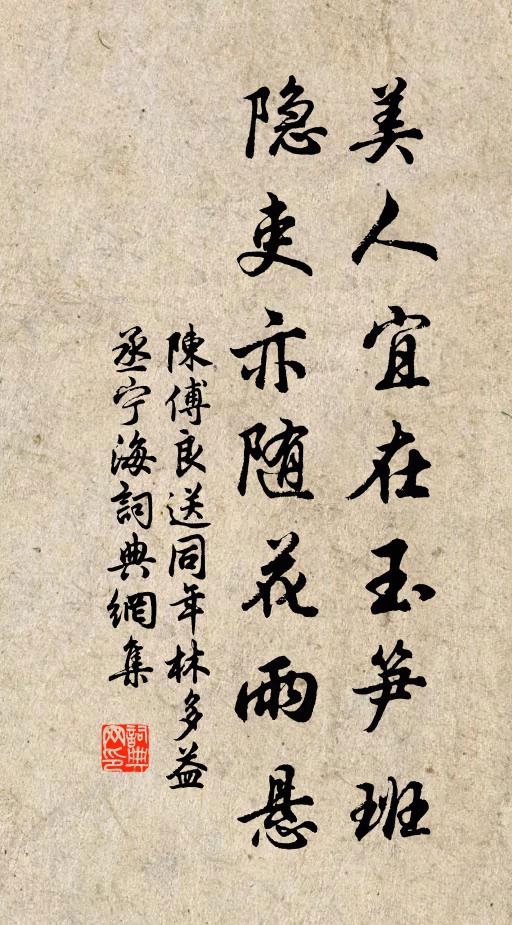 美人宜在玉笋班
隐吏亦随花雨悬
陳傅良送同年林多益
丞宁海詞典網集
詞典网印